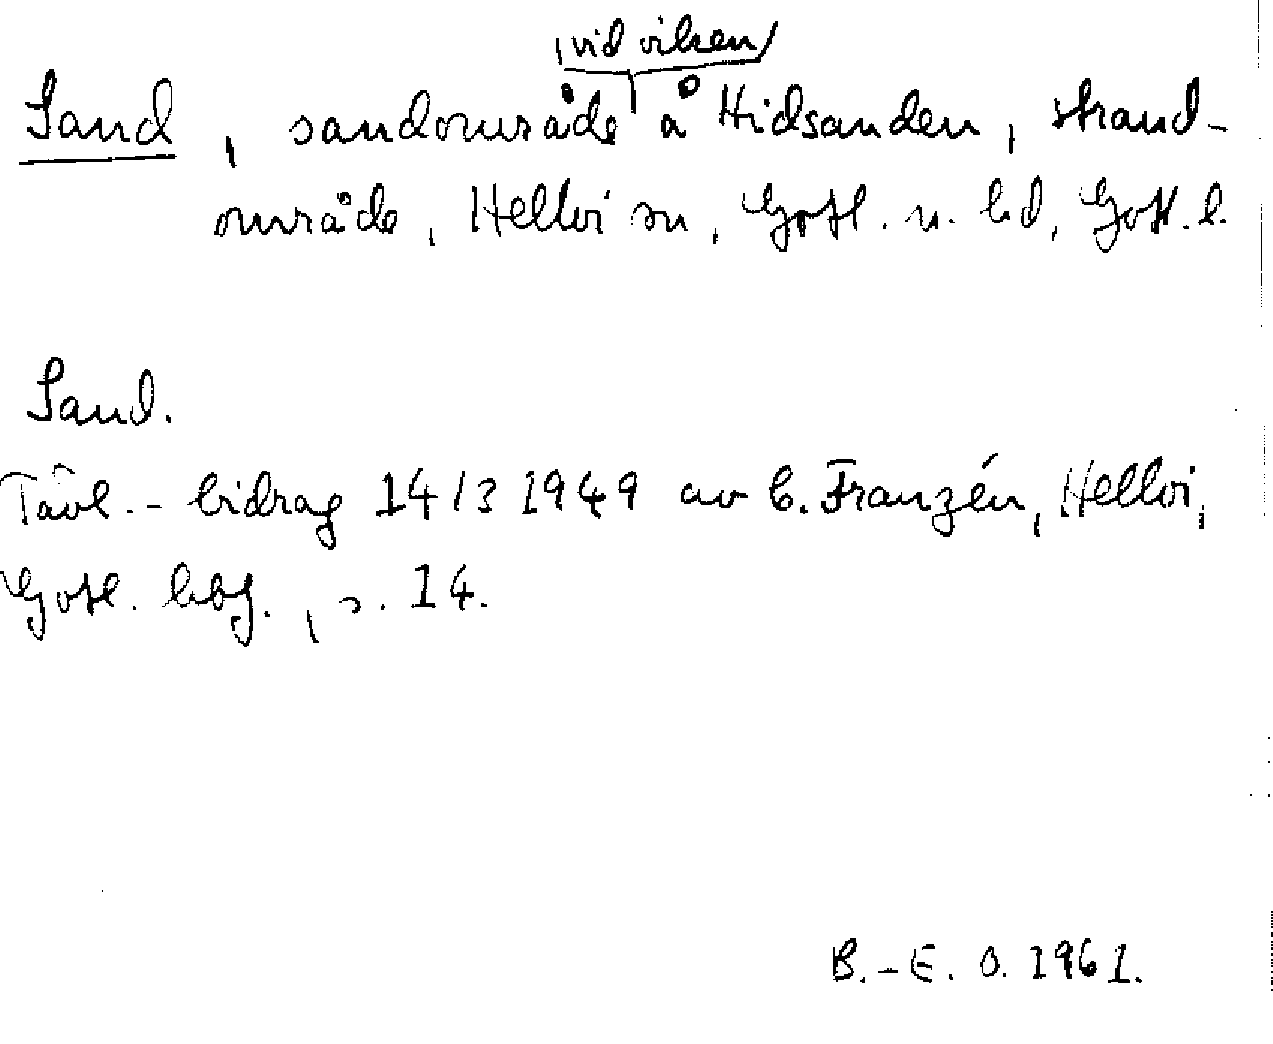 , vid viken
Sand, sandområde å Hidsanden, strand-
område, Hellvi sn, Gotl. n. hd, Gotl. l.
Sand.
Tävl.- bidrag 14/3 1949 av C. Franzén, Hellvi,
Gotl. hbg., s. 14.
B.-E. O. 1961.